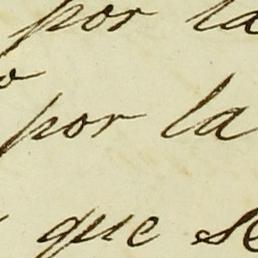 por la
por la
que se